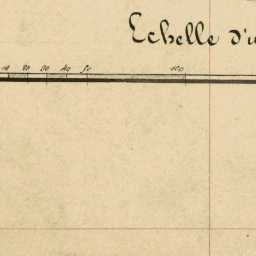 Echelle d'u
10 20 30 40 50 100